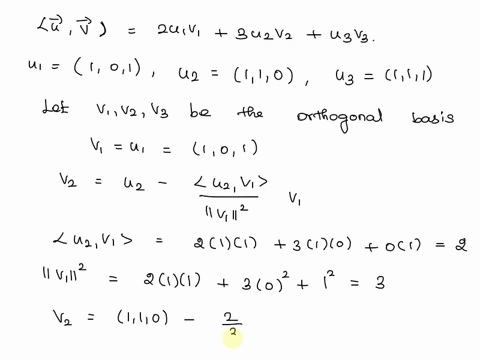 ⟨u⃗, v⃗⟩ = 2u₁v₁ + 3u₂v₂ + u₃v₃.
u₁ = (1, 0, 1), u₂ = (1, 1, 0), u₃ = (1, 1, 1)
Let v₁, v₂, v₃ be the orthogonal basis
v₁ = u₁ = (1, 0, 1)
v₂ = u₂ - ⟨u₂, v₁⟩ / ||v₁||² v₁
⟨u₂, v₁⟩ = 2(1)(1) + 3(1)(0) + 0(1) = 2
||v₁||² = 2(1)(1) + 3(0)² + 1² = 3
v₂ = (1, 1, 0) - 2/3